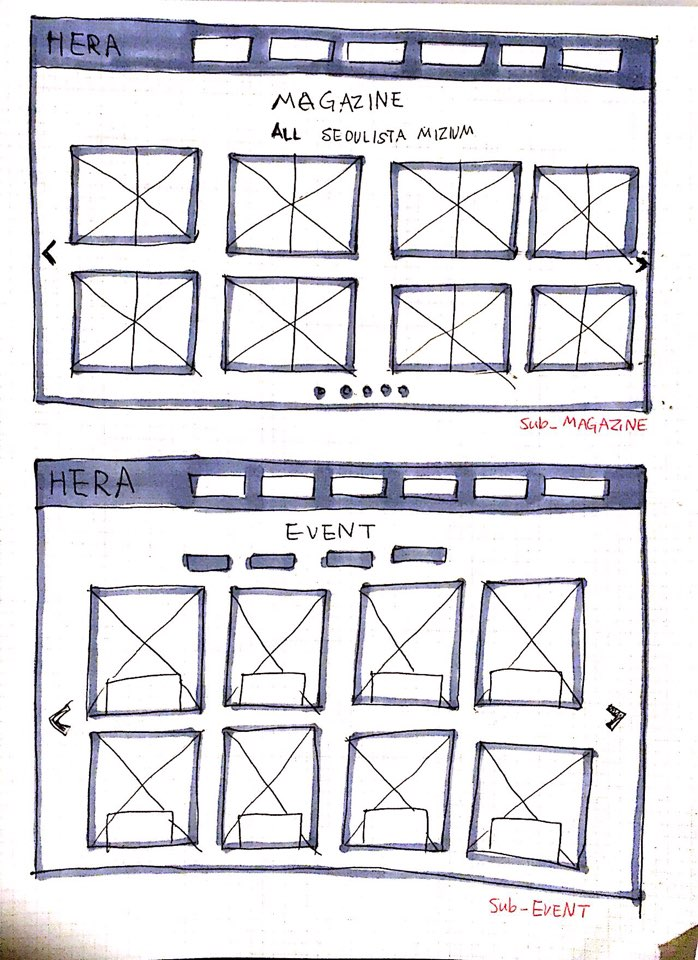 HERA
MAGAZINE
ALL SEOULISTA MIZIUM
Sub_MAGAZINE
HERA
EVENT
Sub-EVENT